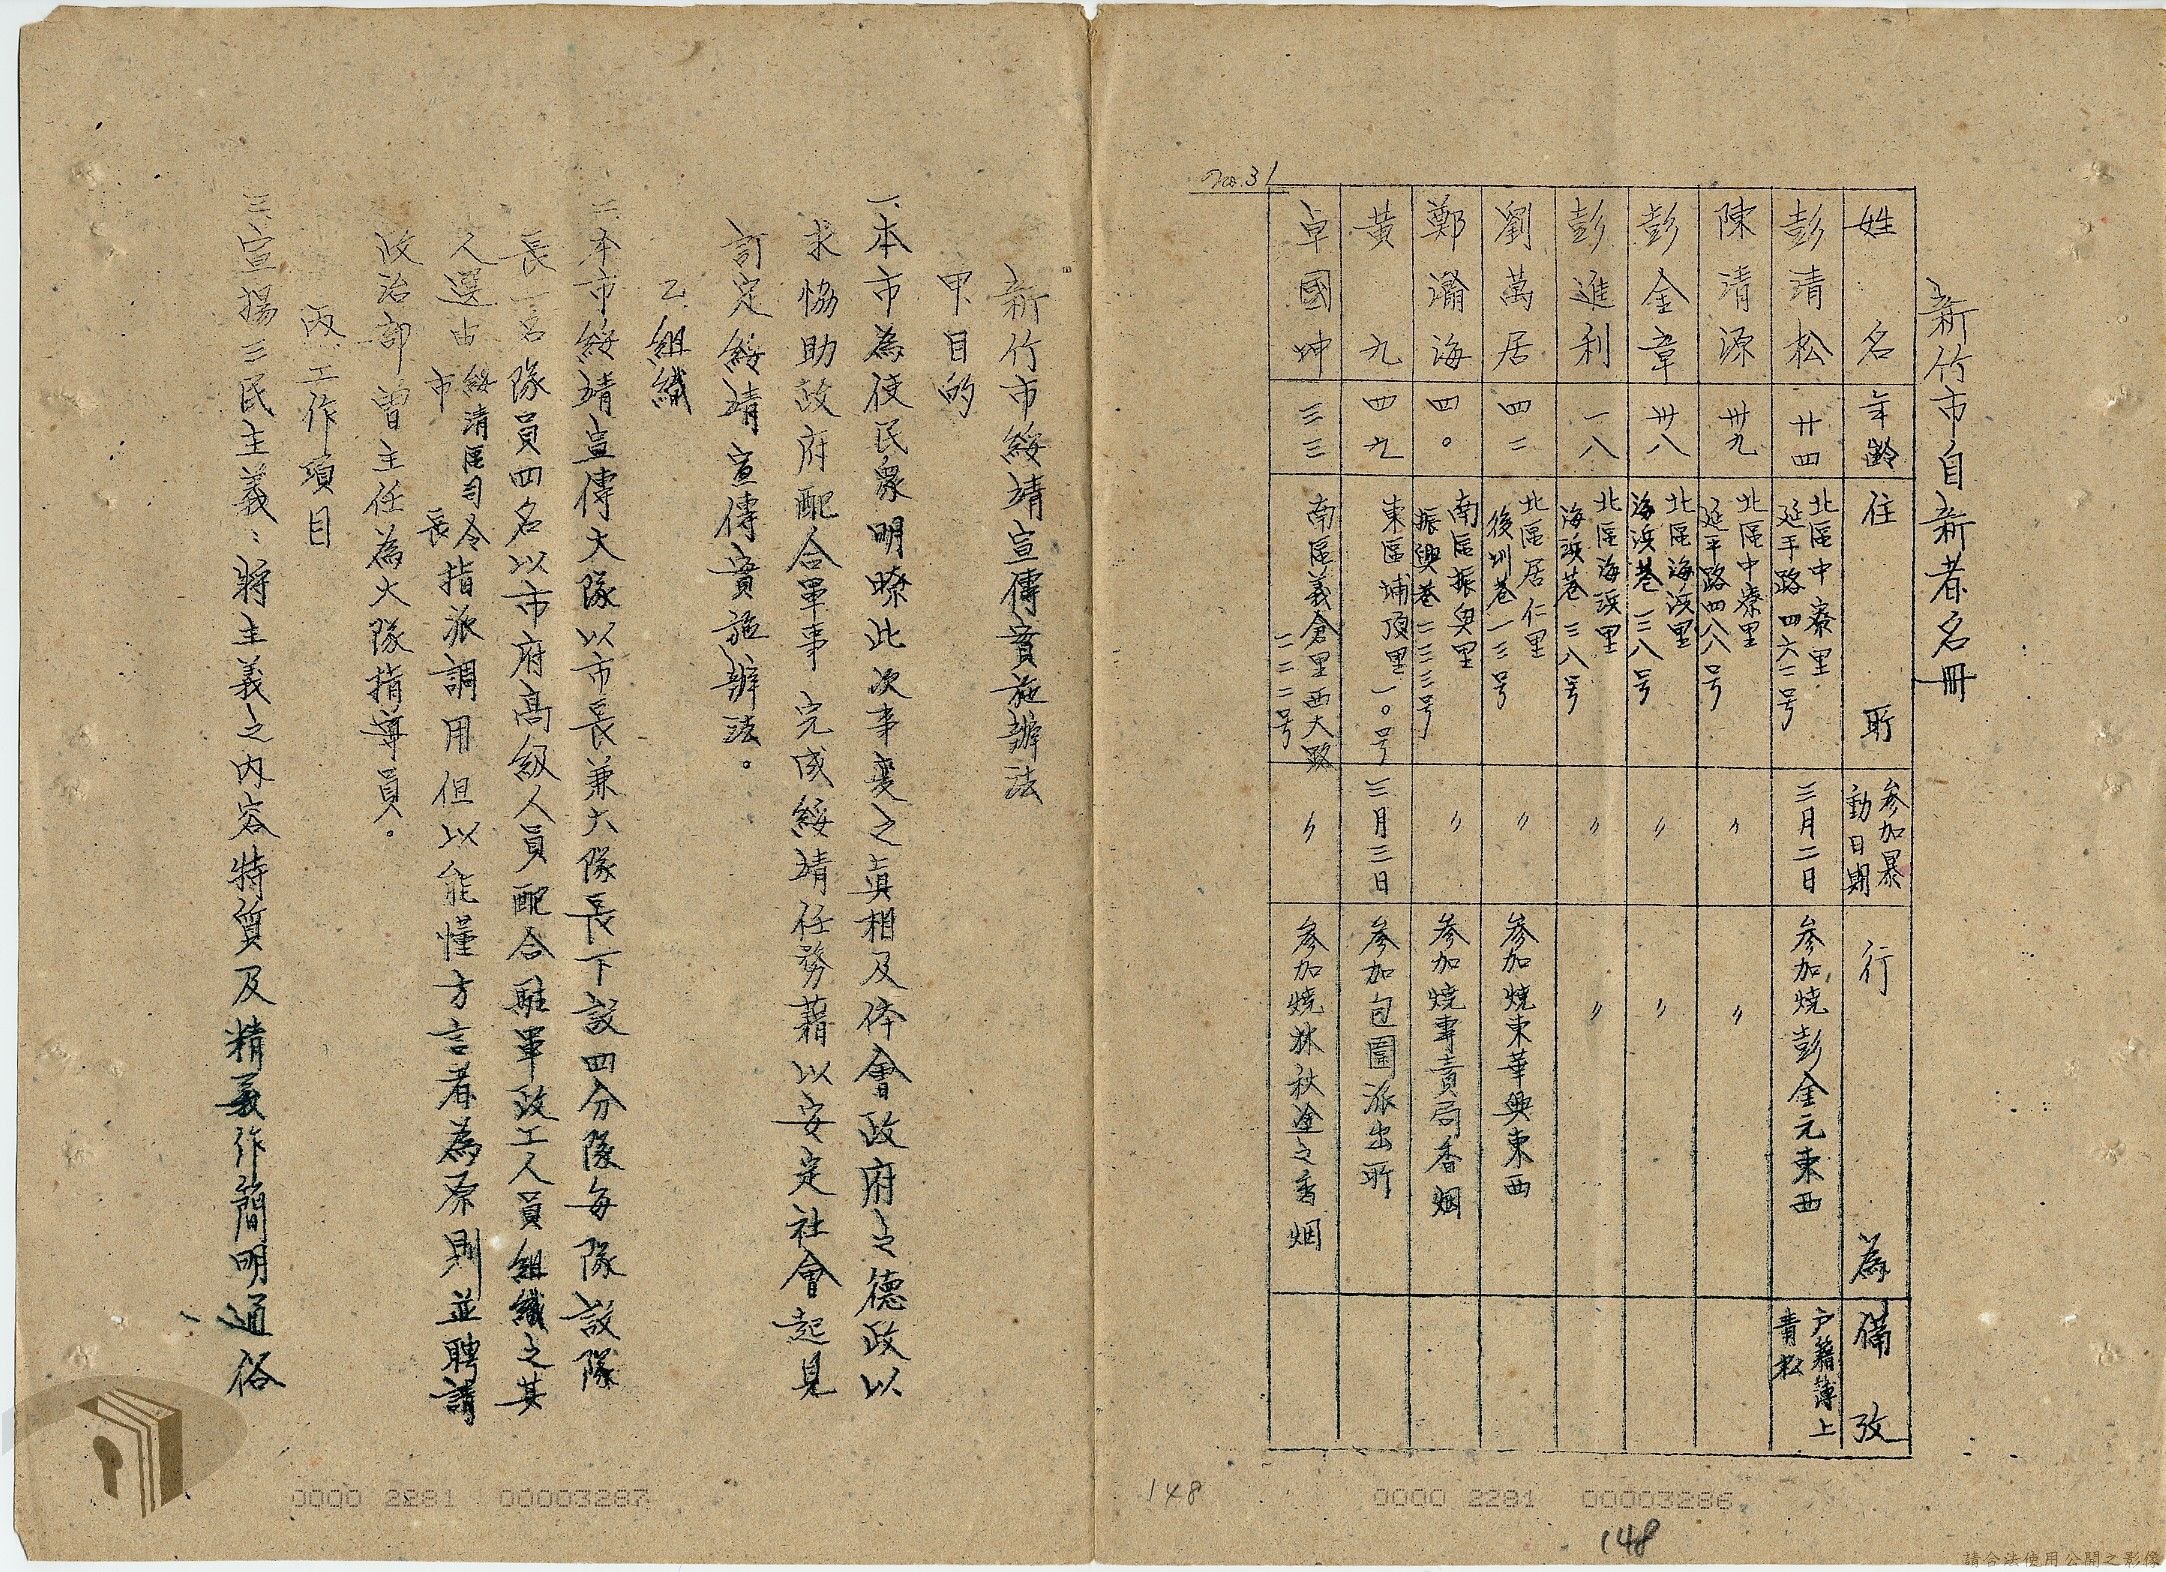 新竹市自新者名冊
姓名 年齡 住所 參加暴動日期 行為 備攷
彭清松 廿四 北區中寮里延平路四六二号 三月二日 參加燒彭金元東西 戶籍薄上青松
陳清源 卅九 北區中寮里延平路四八八号 〃 〃
彭金章 卅八 北區海浜里海浜巷三八号 〃 〃
彭進利 一八 北區海浜里海浜巷三八号 〃 〃
劉萬居 四二 北區居仁里後圳巷一三号 〃 參加燒東華興東西
鄭瀰海 四〇 南區振興里振興巷二三三号 〃 參加燒專責局香烟
黃九 四九 東區埔頂里一〇号 三月三日 參加包圍派出所
卓國坤 三三 南區義倉里西大路二二二号 〃 參加燒林秋塗之香烟
No.31
148
0000 2281 00003286
148
新竹市綏靖宣傳實施辦法
甲、目的
一、本市為使民眾明瞭此次事變之真相及体會政府之德政以
求恊助政府配合軍事完成綏靖任務藉以安定社會起見
訂定綏靖宣傳實施辦法。
乙、組織
二、本市綏靖宣傳大隊以市長兼大隊長下設四分隊每隊設隊
長一名隊員四名以市府高級人員配合駐軍政工人員組織之其
人選由綏清區司令市長指派調用但以能懂方言者為原則並聘請
政治部曾主任為大隊指導員。
丙、工作項目
三、宣揚三民主義：將主義之內容特質及精義作簡明通俗、
0000 2281 00003287
請合法使用公開之影像